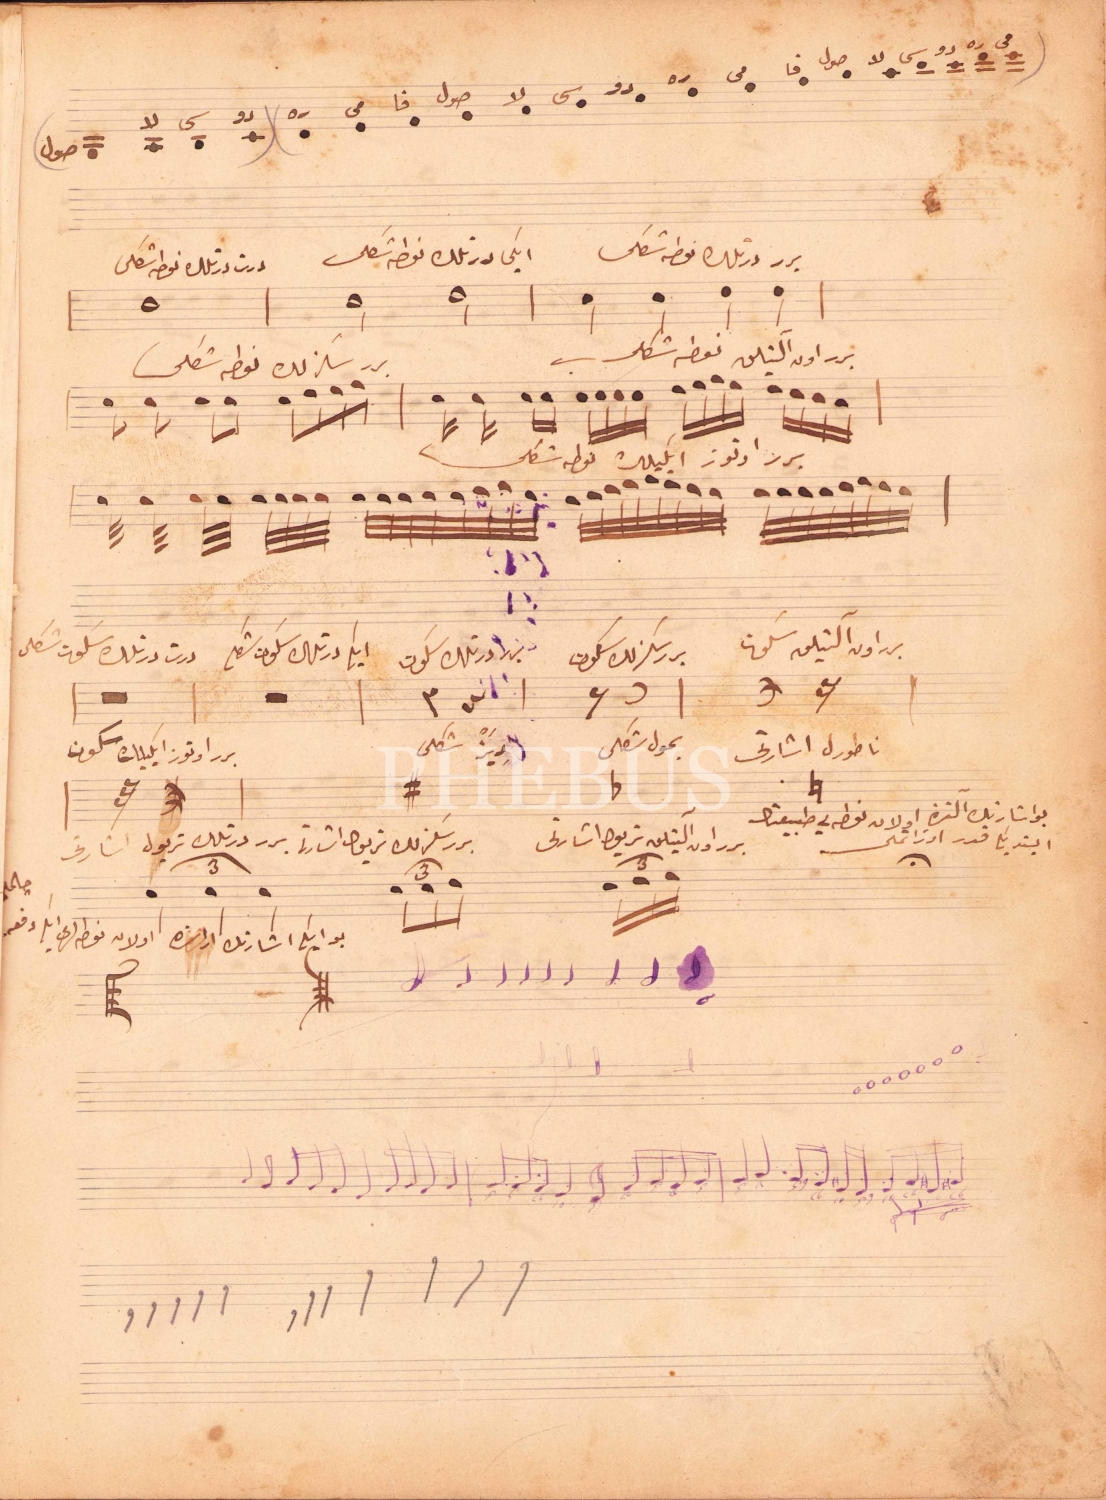 صول لا سی دو ره می فا صول لا سی دو ره می فا صول لا سی دو ره می
برر درتلك نوطه شكلی ایكی درتلك نوطه شكلی درت درتلك نوطه شكلی
برر اون آلتیلق نوطه شكلی برر سكزلك نوطه شكلی
برر اوتوز ایكیلك نوطه شكلی
برر اون آلتیلق سكوت برر سكزلك سكوت برر درتلك سكوت ایكی درتلك سكوت شكلی درت درتلك سكوت شكلی
ناطورل اشارتی بمول شكلی دیيز شكلی برر اوتوز ایكیلك سكوت
PHEBUS
بو اشارتك آلتنده اولان نوطه یی
قدر اوزاتملی
برر اون آلتیلق تریوله اشارتی برر سكزلك تریوله اشارتی برر درتلك تریوله اشارتی
3 3 3
بو ایكی اشارتك اراسنده اولان نوطه لری ایكی دفعه
چالملی